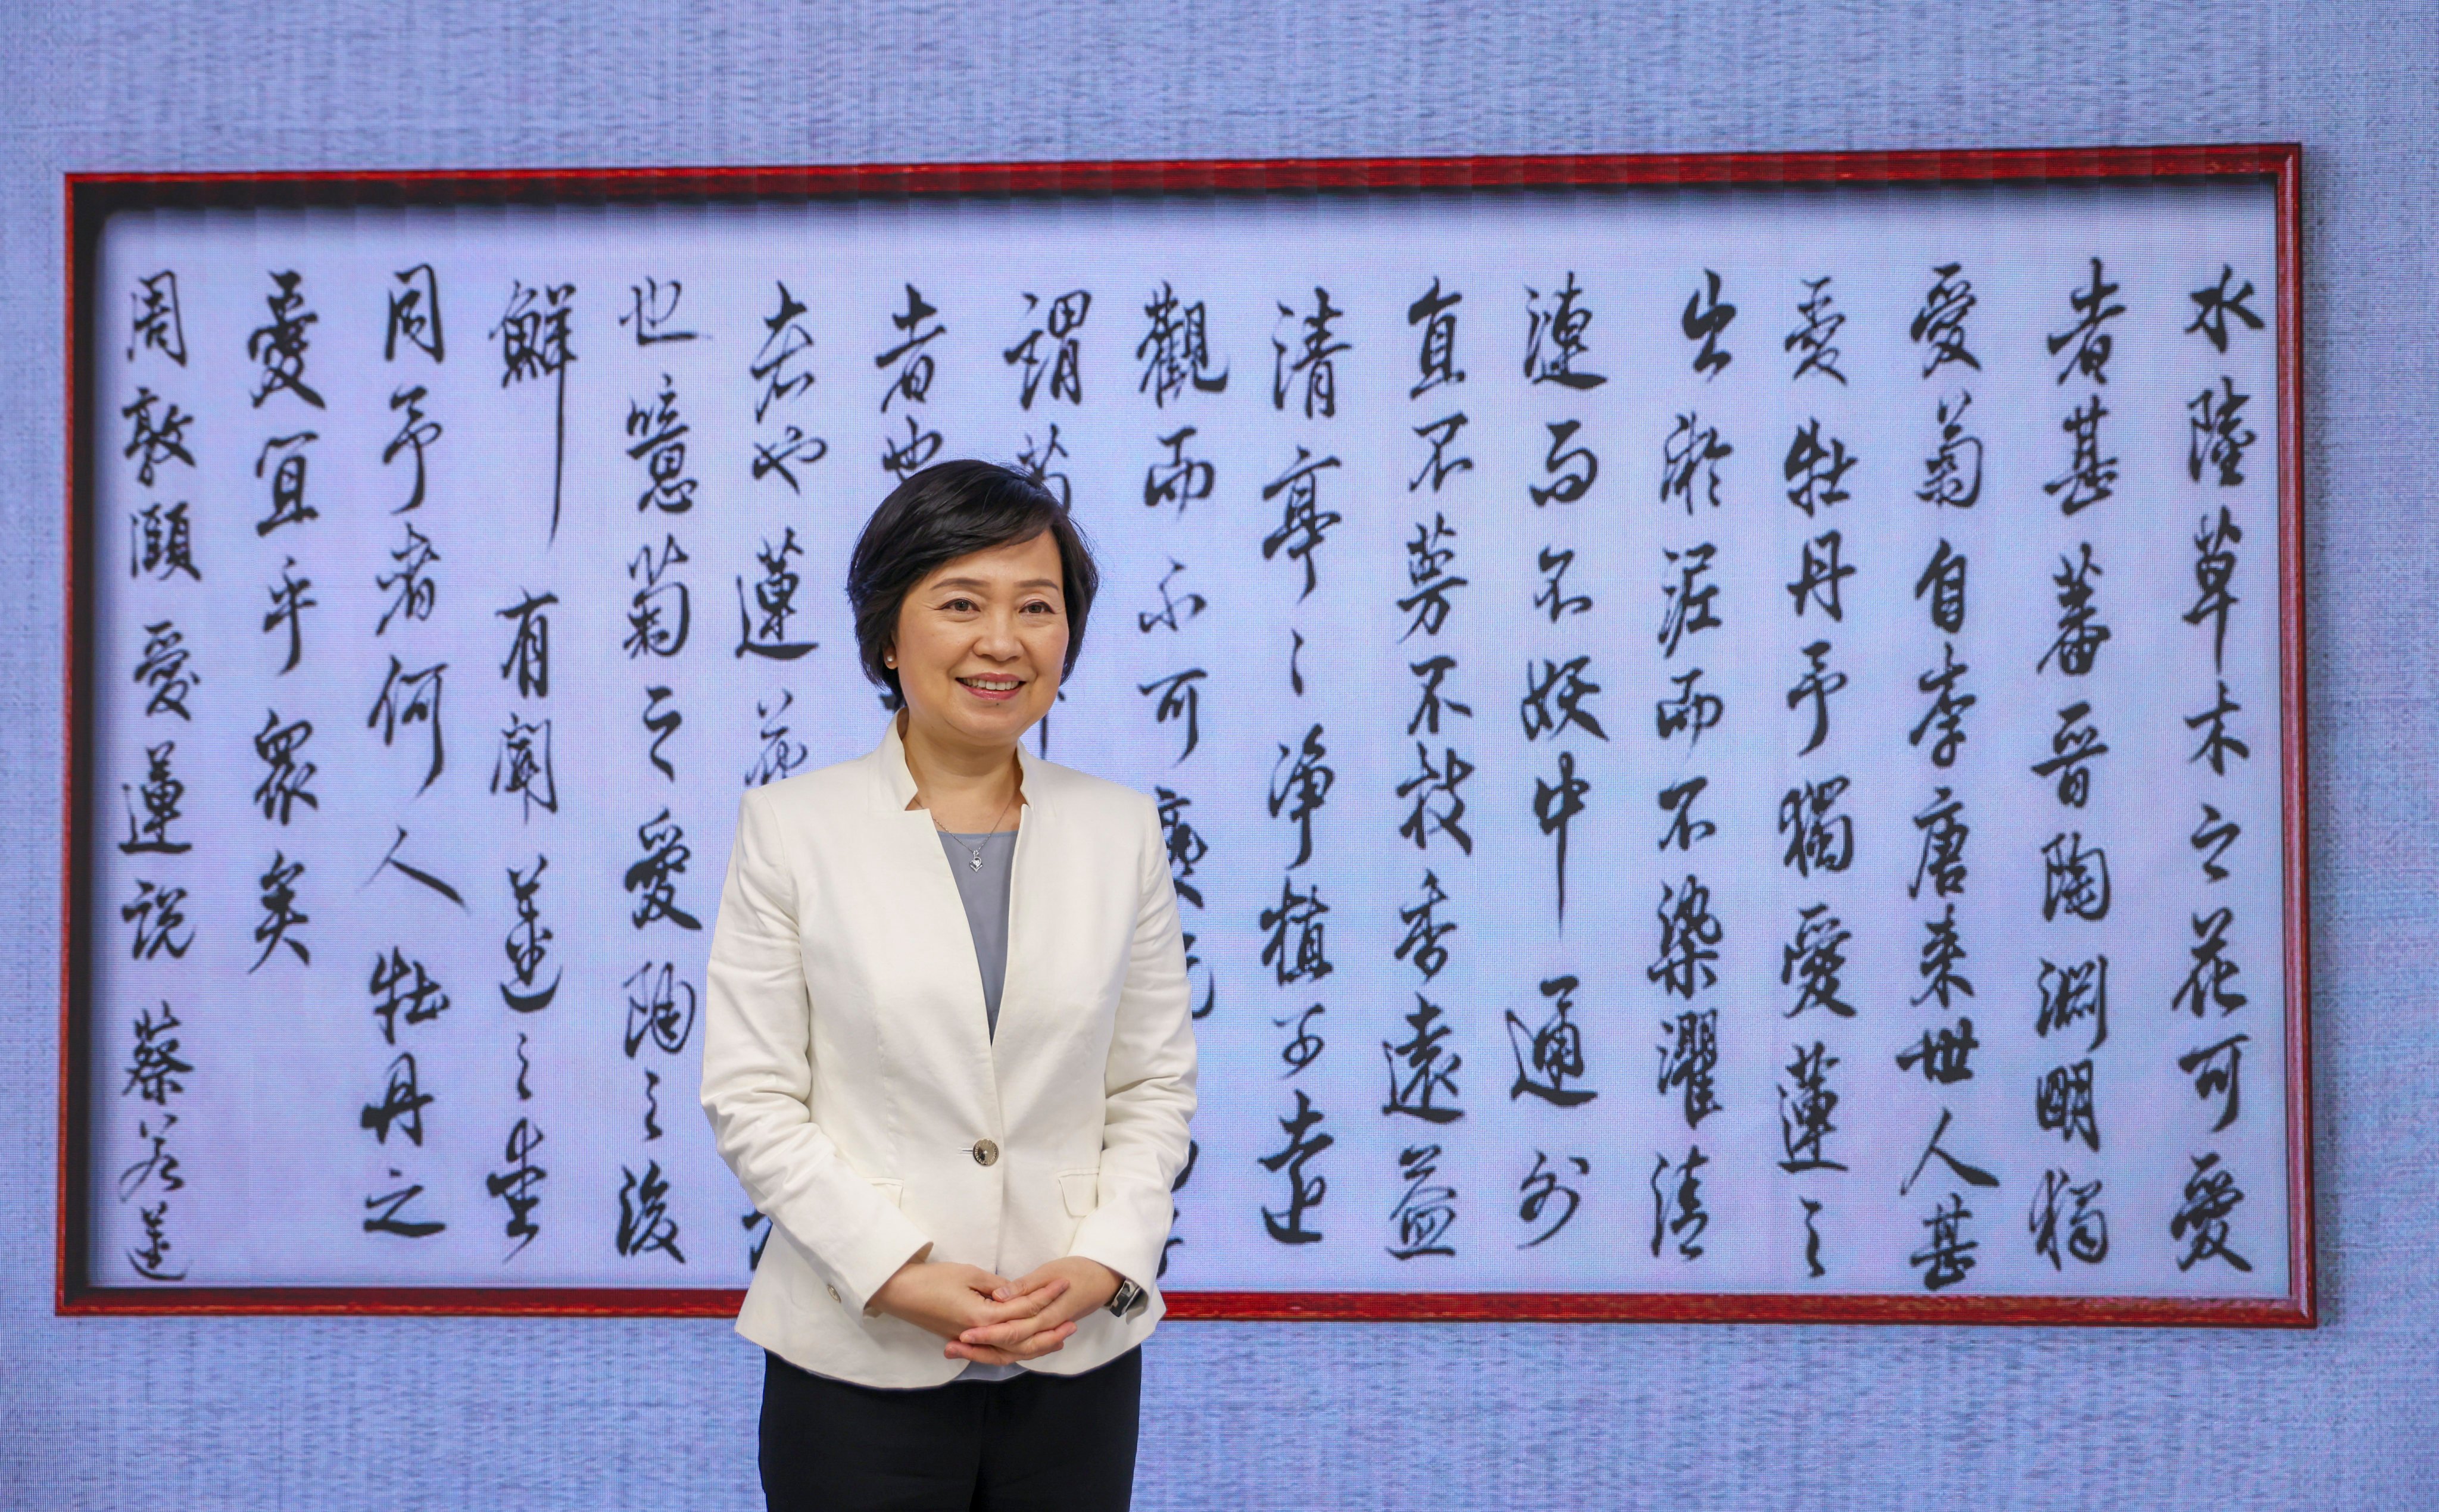 水陸草木之花可愛
者甚蕃晉陶淵明獨
愛菊自李唐來世人甚
愛牡丹予獨愛蓮之
出淤泥而不染濯清
漣而不妖中通外
直不蔓不枝香遠益
清亭〻淨植可遠
觀而不可
謂
者也
者也蓮花
也噫菊之愛陶之後
鮮有聞蓮之愛
同予者何人牡丹之
愛宜乎眾矣
周敦頤愛蓮說 蔡若蓮